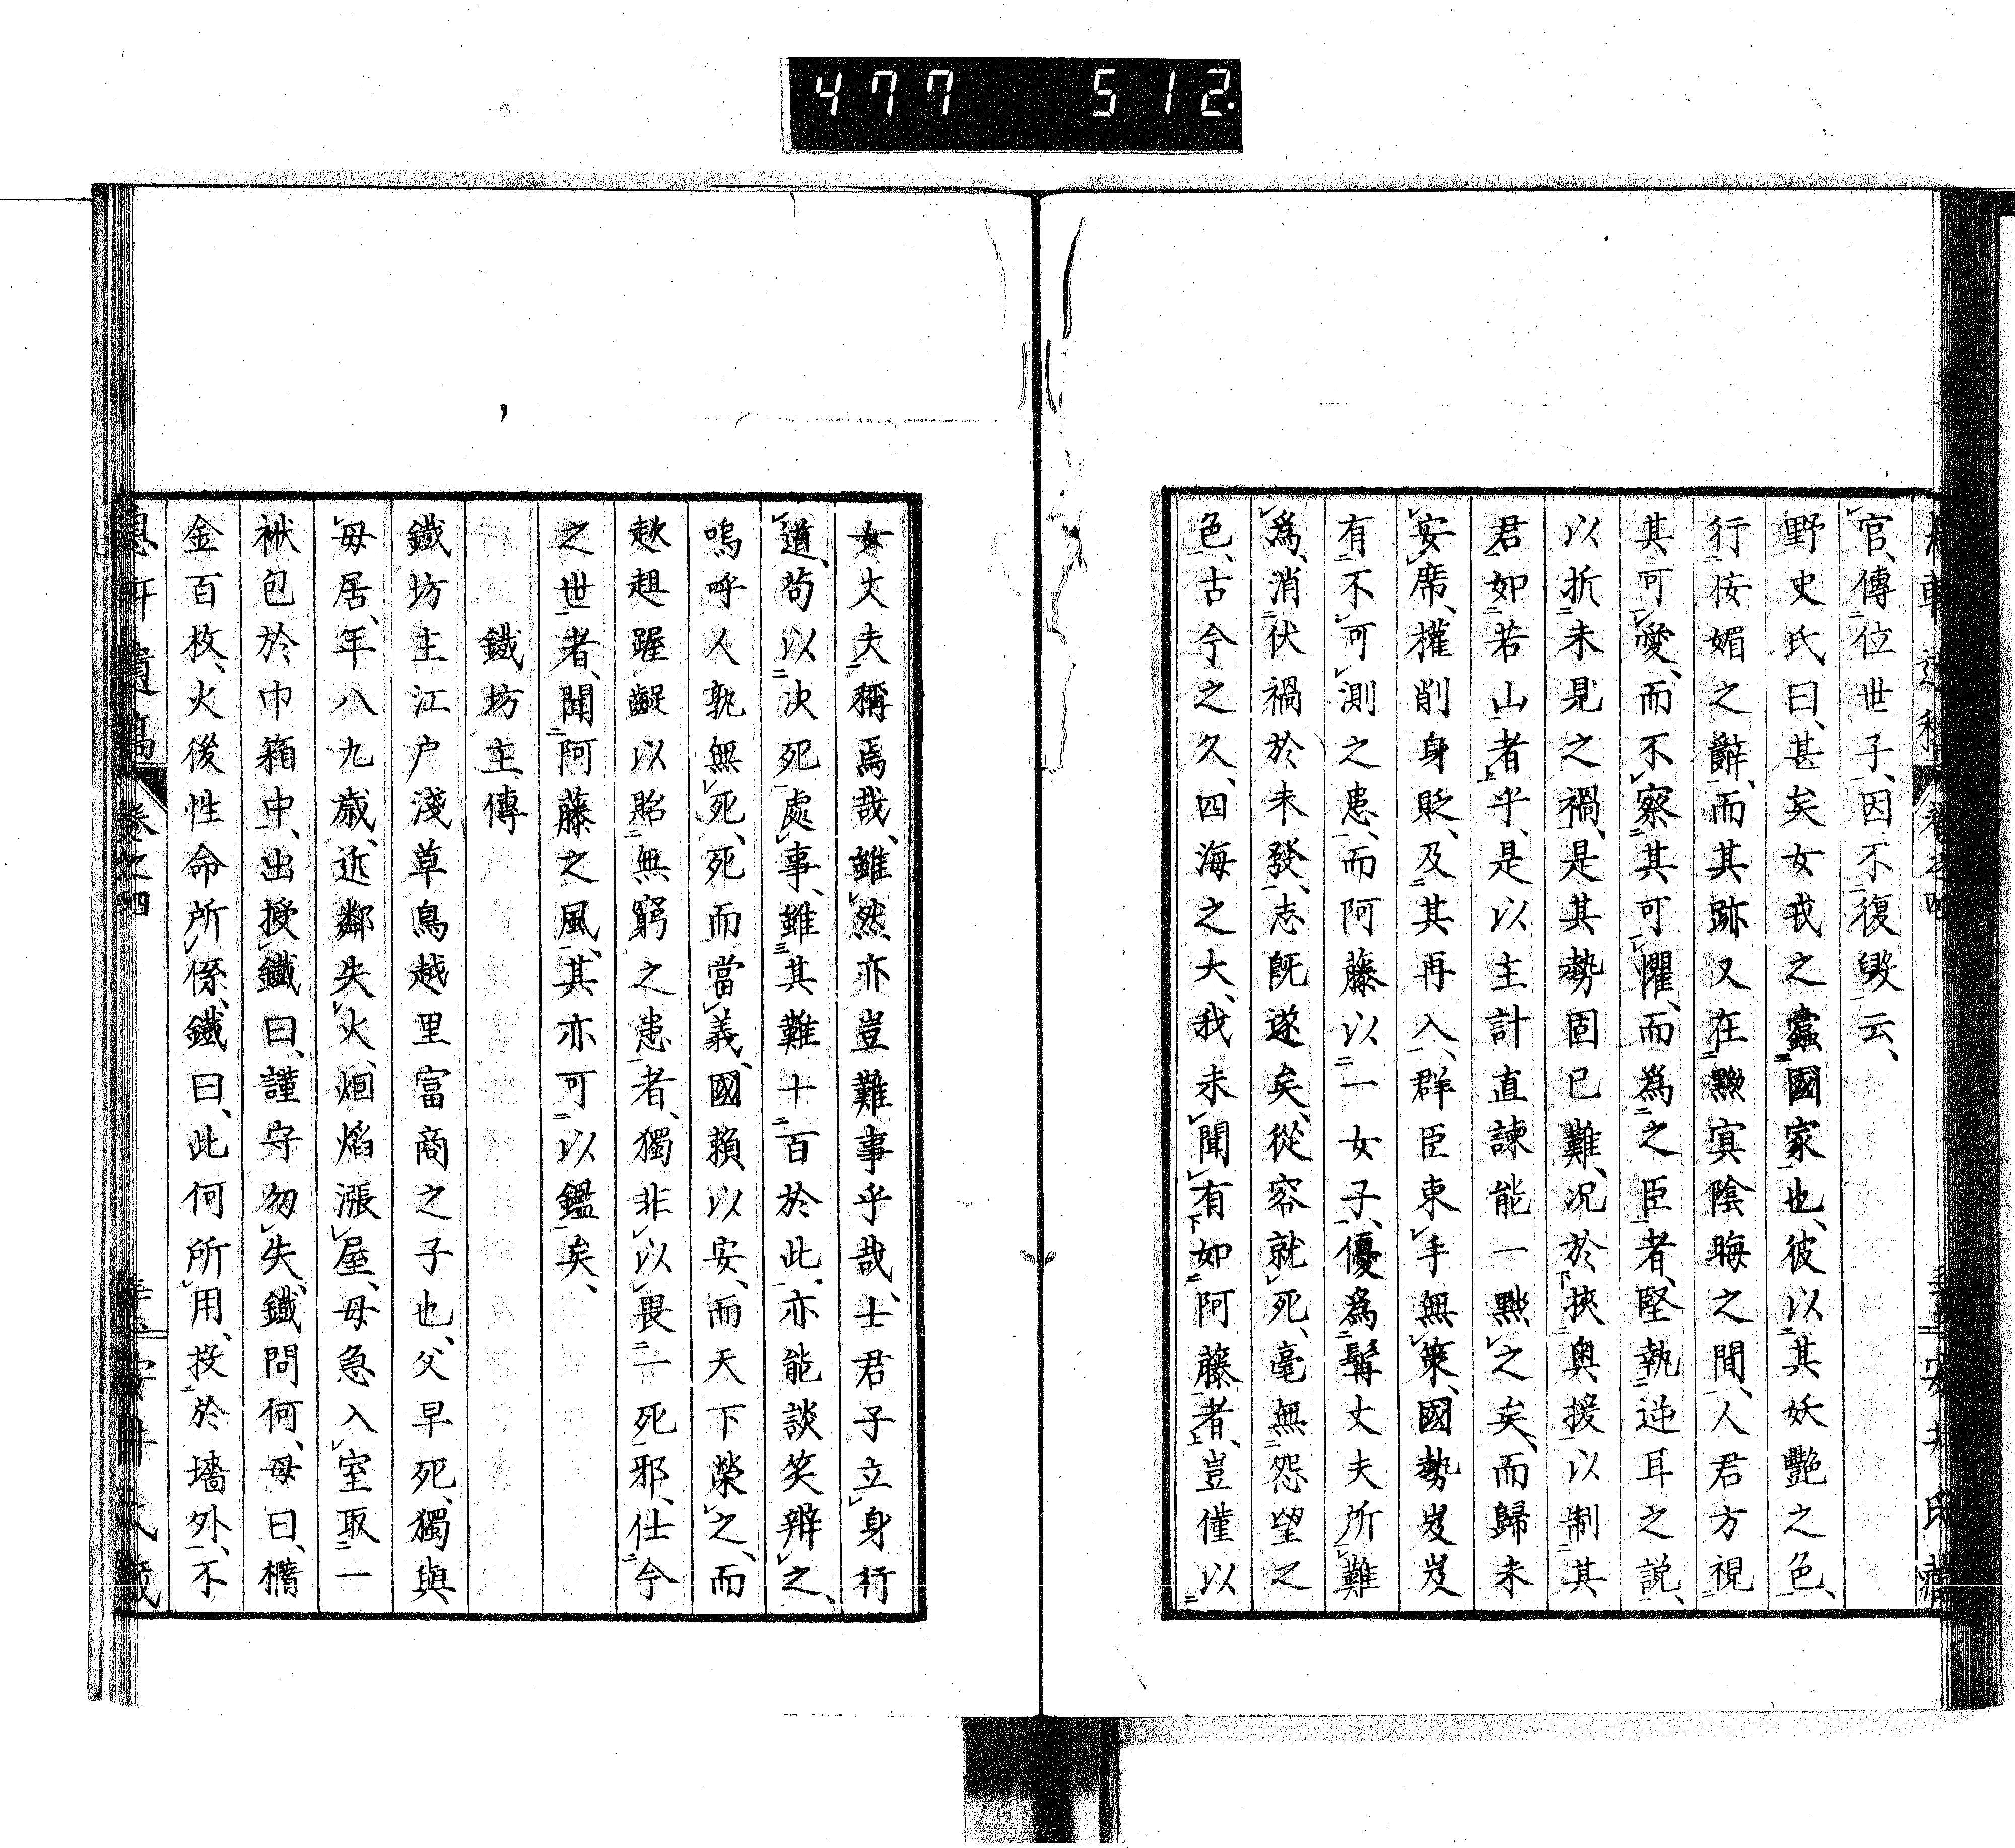 477 512
官、傳位世子、因不復變云、
野史氏曰、甚矣女戎之蠹國家也、彼以其妖艷之色、
行侫媚之辭、而其跡又在黙寘陰晦之間、人君方視
其可愛、而不察其可懼、而為之臣者、堅執逆耳之說、
以折未見之禍、是其勢固已難、况於挾奥援以制其
君如若山者乎、是以主計直諫能一黙之矣、而歸未
安席、權削身貶、及其再入、群臣束手無策、國勢岌岌
有不可測之患、而阿藤以一女子、優為髯丈夫所難
為、消伏禍於未發、志既遂矣、從容就死、毫無怨望之
色、古今之久、四海之大、我未聞有如阿藤者、豈僅以
女丈夫稱焉哉、雖然亦豈難事乎哉、士君子立身行
道、苟以決死處事、雖其難十百於此、亦能談笑辨之、
嗚呼人孰無死、死而當義、國頼以安、而天下榮之、而
趑趄齷齪以貽無窮之患者、獨非以畏一死邪、仕今
之世者、聞阿藤之風、其亦可以鑑矣、
鐵坊主傳
鐵坊主江户淺草鳥越里富商之子也、父早死、獨與
母居、年八九歲、近鄰失火、烟焰漲屋、母急入室取一
袱包於巾箱中、出授鐵曰、謹守勿失、鐵問何、母曰、櫡
金百枚、火後性命所係、鐵曰、此何所用、投於墻外、不
息軒遺稿 卷之四 安井氏藏